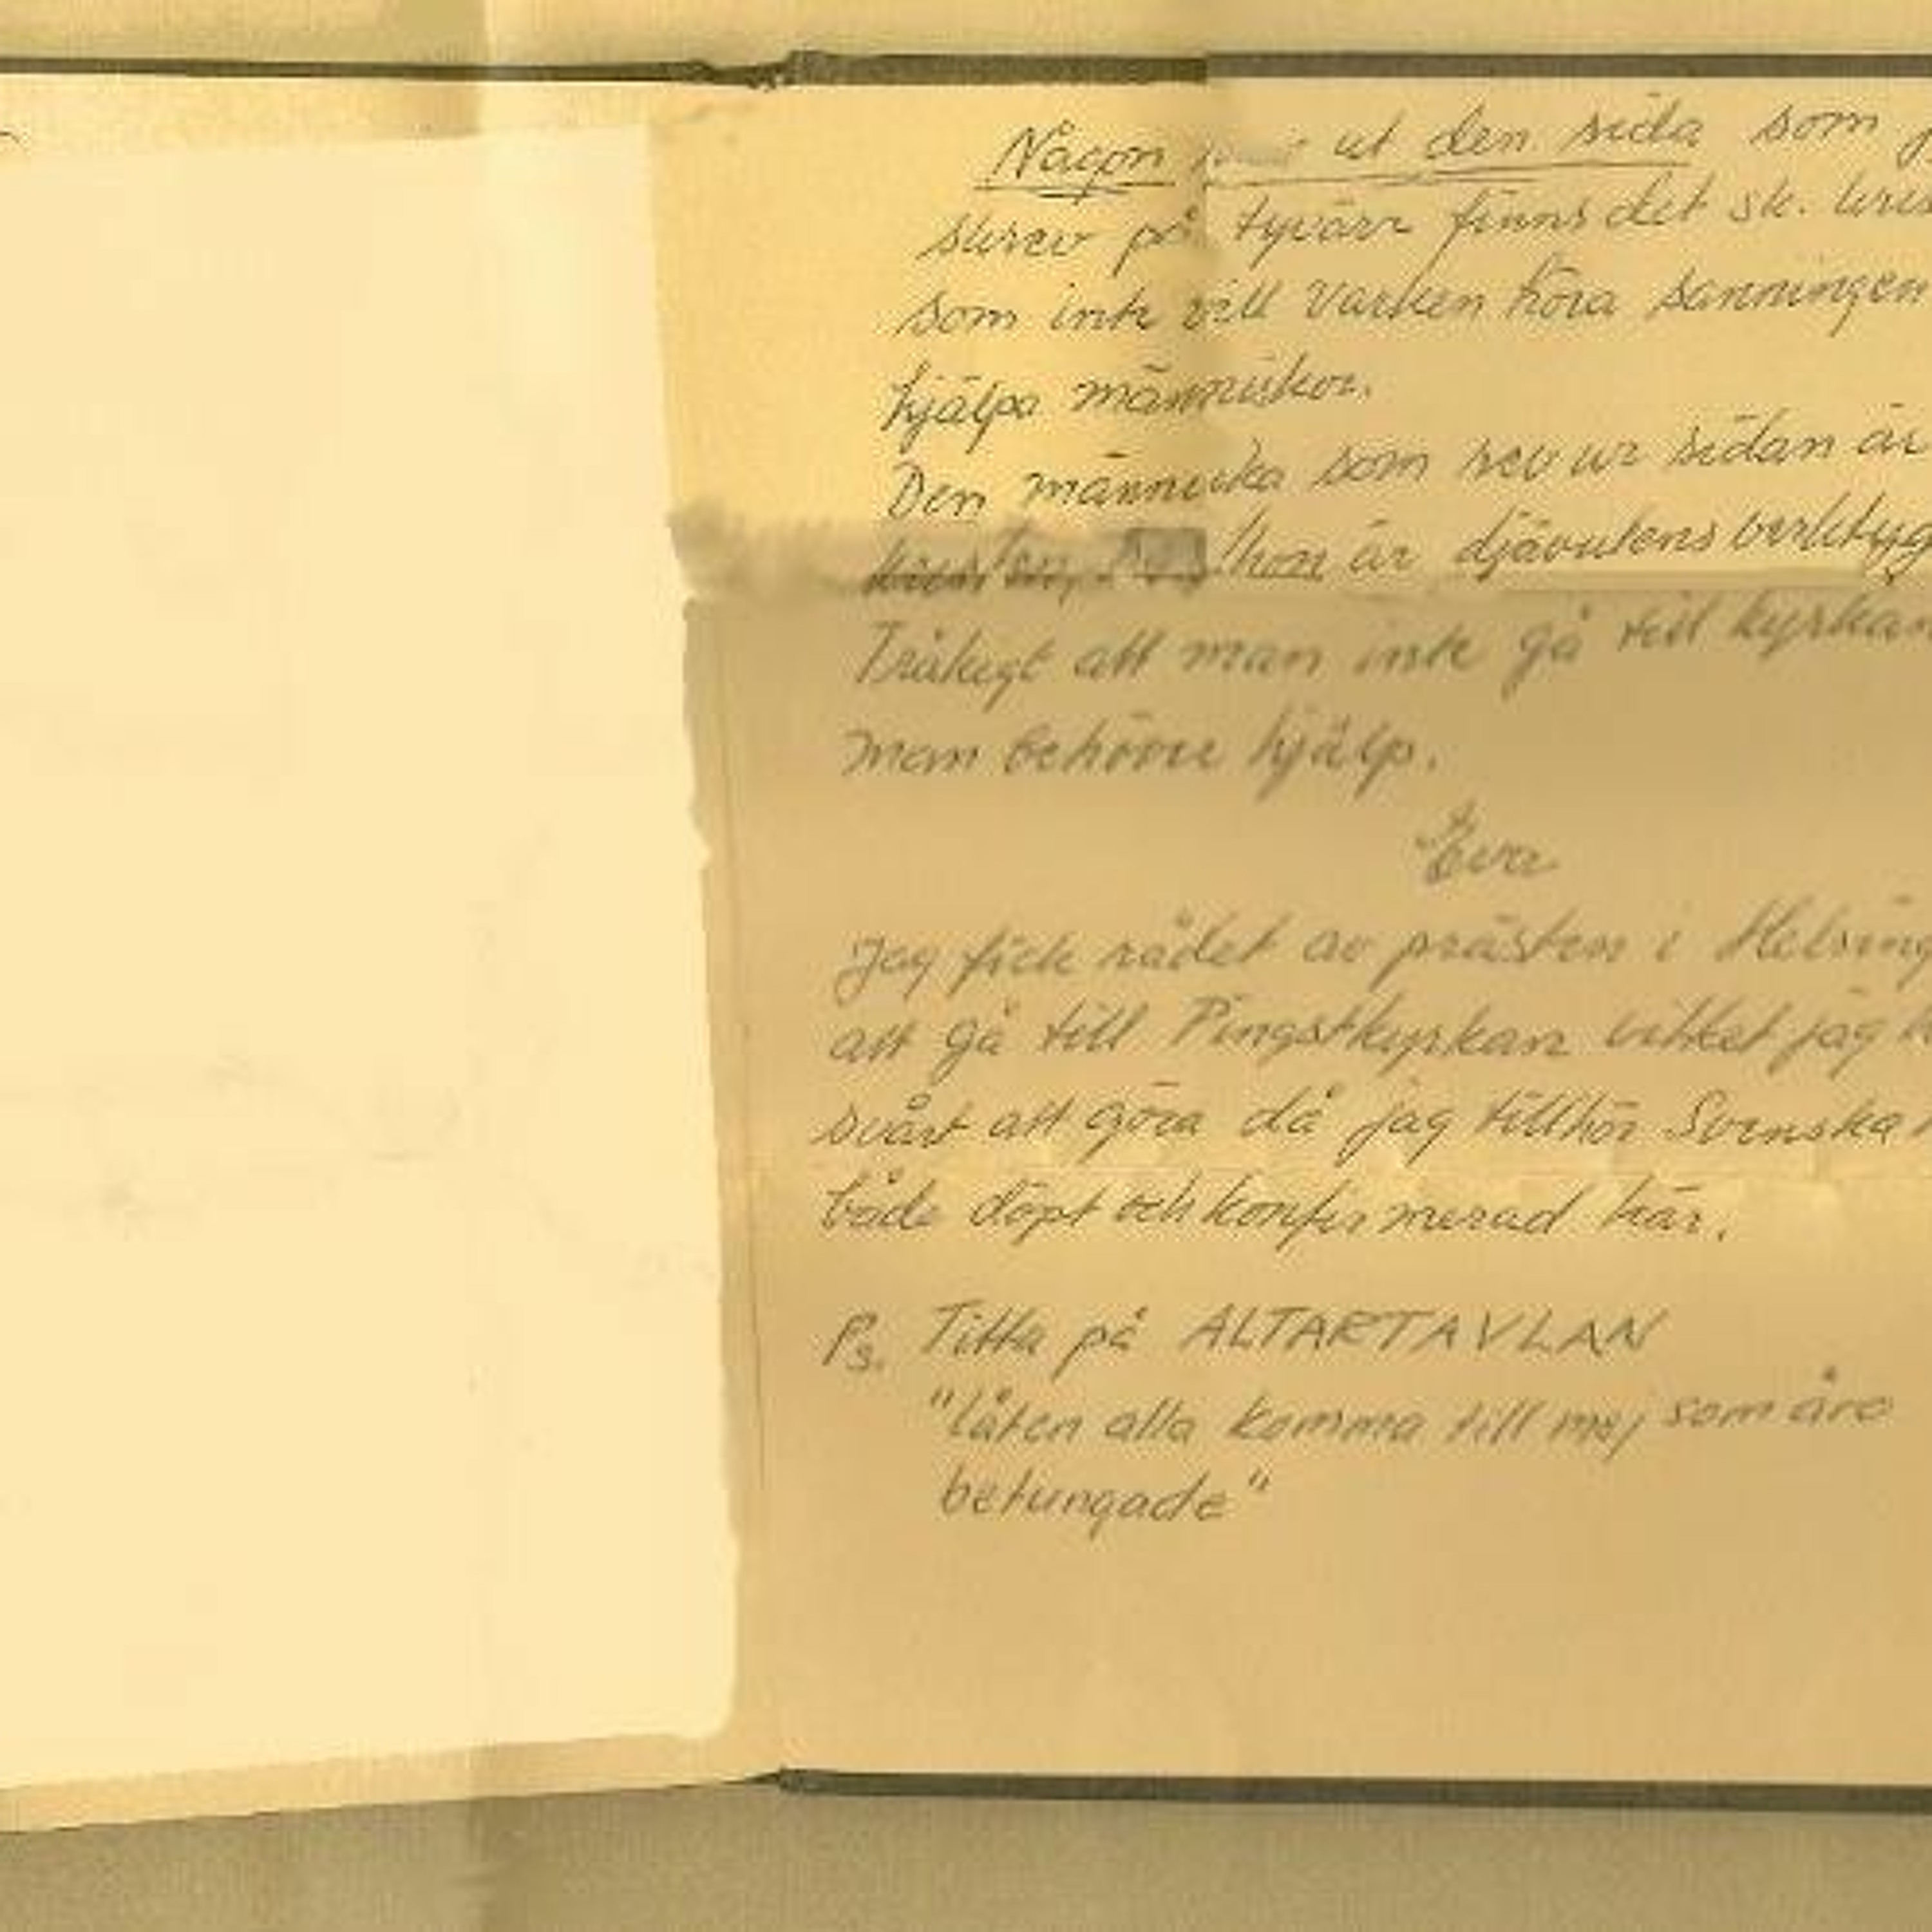 Någon ut den sida som
skrev på tyvärr finns det sk.
som inte vill varken höra sanningen
hjälpa människor.
Den människa som rev ur sidan är
hon är djävulens verktyg
Tråkigt att man inte gå till kyrkan
man behöver hjälp.
Eva
Jag fick rådet av prästen i
att gå till Pingstkyrkan vilket jag
svårt att göra då jag tillhör Svenska
både döpt och konfirmerad här.
Ps. Titta på ALTARTAVLAN
"låten alla komma till mej som äro
betungade"